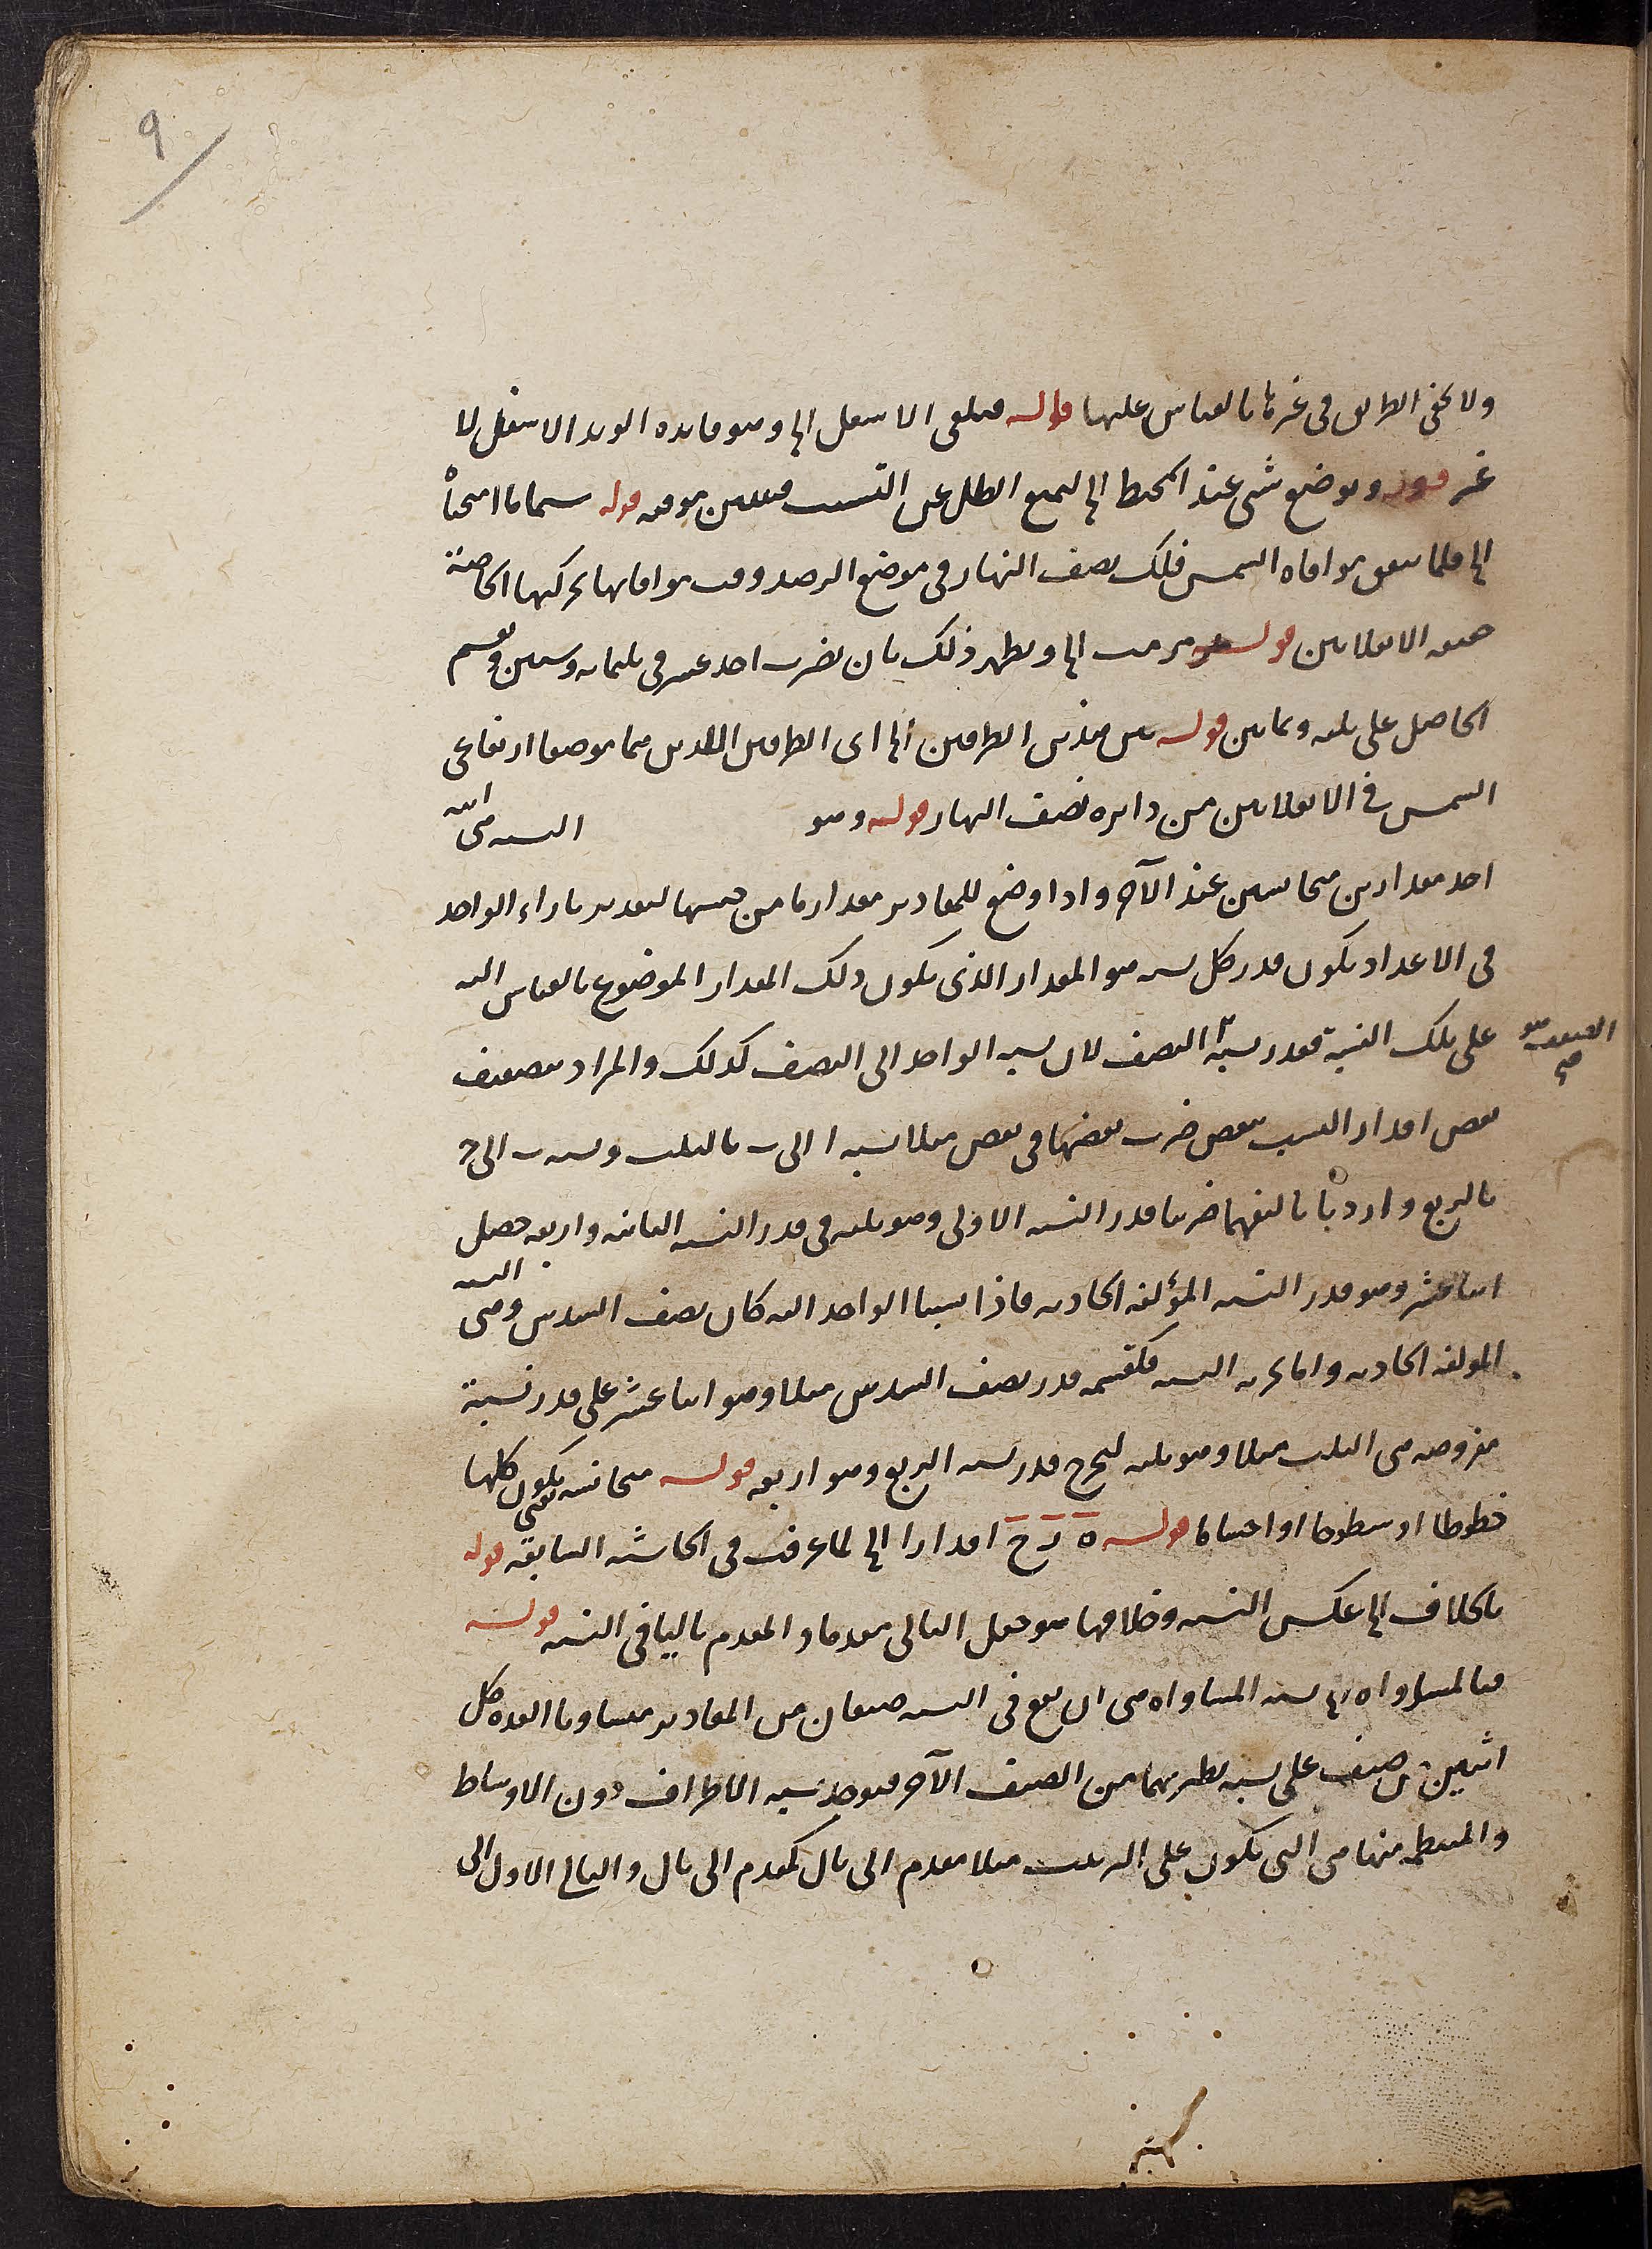 ٩
ولا يخفى الطريق فى غيرها بالقياس عليها قوله فيلقى الاسفل الخ وهو فايدة الوتد الاسفل لا
غير قوله وبوضع شى عند المحيط الخ ليمنع الظل عن التشتت فيتعين موقعه قوله
الخ فلما يتفق موافاة الشمس فلك نصف النهار فى موضع الرصد وقت موافاتها بحركتها الخاصة
الانقلابين قوله الخ ويظهر ذلك بان يضرب احد عشر فى ثلثمائة وستين ويقسم
الحاصل على ثلثة وثمانين قوله بين هذين الطرفين الخ اى الطرفين اللذين هما موضعا ارتفاعى
الشمس فى الانقلابين من دايرة نصف النهار قوله وهو النسبة هى اية
احد مقدارين متجانسين عند الآخر واذا وضع للمقادير مقدار ما من جنسها ليعد بازاء الواحد
فى الاعداد يكون قدر كل نسبة هو المقدار الذى يكون ذلك المقدار الموضوع بالقياس اليه
على تلك النسبة فقدر نسبة النصف لان نسبة الواحد الى النصف كذلك والمراد بتضعيف
بعض اقدار النسب ببعض ضرب بعضها فى بعض مثلا نسبة ا الى ب بالثلث ونسبة ب الى ج
بالربع واردنا تاليفهما ضربنا قدر النسبة الاولى وهو ثلثة فى قدر النسبة الثانية واربعة حصل
اثنا عشر وهو قدر النسبة المؤلفة الحادثة فاذا نسبنا الواحد اليه كان نصف السدس وهى النسبة
المولفة الحادثة واما تجزية النسبة فكقسمة قدر نصف السدس مثلا وهو اثنا عشر على قدر نسبة
مفروضة هى الثلث مثلا وهو ثلثة ليخرج قدر نسبة الربع وهو اربعة قوله متجانسة يعنى يكون كلها
خطوطا او سطوحا او اجساما قوله ه ز ح اقدارا الخ لما عرفت فى الحاشية السابقة قوله
بالخلاف الخ عكس النسبة وخلافها هو جعل التالى مقدما والمقدم تاليا فى النسبة قوله
فبالمساواة الخ نسبة المساواة هى ان يقع فى النسبة صنفان من المقادير متساويا العدة كل
اثنين من صنف على نسبة نظيريهما من الصنف الآخر فيوخذ نسبة الاطراف دون الاوساط
والمنتظمة منها هى التى يكون على الترتيب مثلا مقدم الى تال كمقدم الى تال والتالى الاول الى